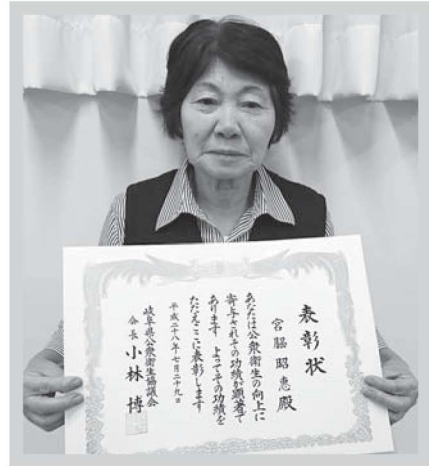 表彰状
宮脇昭惠殿
あなたは公衆衛生の向上に
寄与されその功績が顕著で
あります よってその功績を
たたえここに表彰します
平成二十八年七月二十九日
岐阜県公衆衛生協議会
会長 小林 博